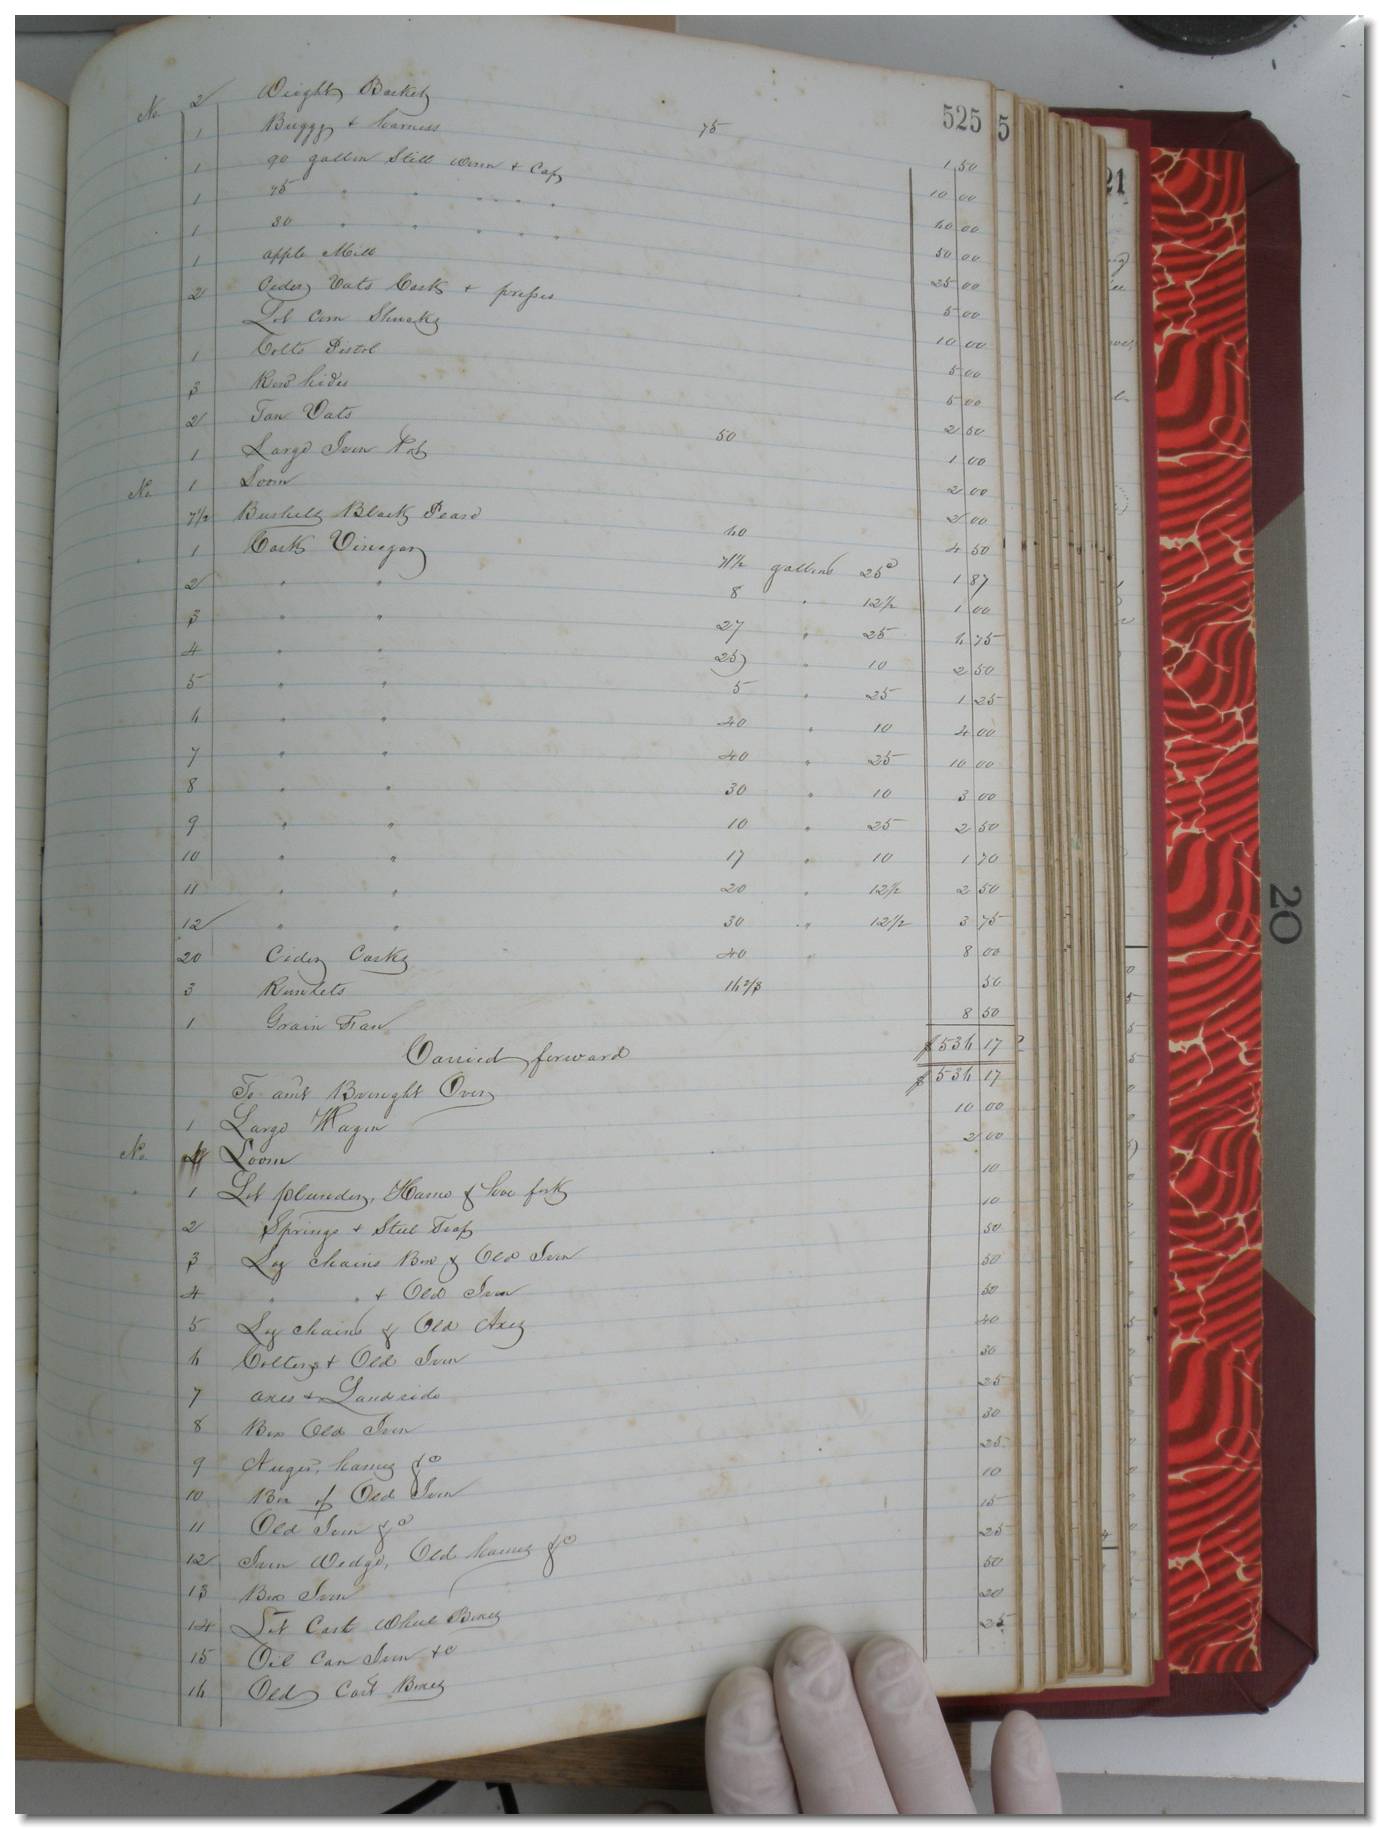 525
5
21
20
No. 2 Weight Basket 75 1 50
1 Buggy & harness 10 00
1 90 gallon Still worm & Cap 60 00
1 75 " " " " " 50 00
1 30 " " " " " 25 00
1 apple Mill 5 00
2 Cider Vats Cask & presses 10 00
Lot Corn Shucks 5 00
1 Colts Pistol 5 00
3 Raw hides 50 2 50
2 Tan Vats 1 00
1 Large Iron Pot 2 00
No. 1 Loom 2 00
7 1/2 Bushels Black Peas 60 4 50
1 Cask Vinegar 7 1/2 gallons 25c 1 87
2 " " 8 " 12 1/2 1 00
3 " " 27 " 25 6 75
4 " " 25 " 10 2 50
5 " " 5 " 25 1 25
6 " " 40 " 10 4 00
7 " " 40 " 25 10 00
8 " " 30 " 10 3 00
9 " " 10 " 25 2 50
10 " " 17 " 10 1 70
11 " " 20 " 12 1/2 2 50
12 " " 30 " 12 1/2 3 75
20 Cider Casks 40 " 8 00
3 Runlets 16 2/3 50
1 Grain Fan 8 50
Carried forward $536 17 ?
To amt Brought Over $536 17
1 Large Wagon 10 00
Loom 2 00
No. 1 Lot plunder, Hame & hoe fork 10
2 Springs & Steel Trap 10
3 Log chains Box & Old Iron 50
4 " " & Old Iron 50
5 Log chains & Old Axes 50
6 Colters & Old Iron 40
7 axes & Landside 30
8 Box Old Iron 25
9 Auger, hames &c 30
10 Box of Old Iron 25
11 Old Iron &c 10
12 Iron Wedge, Old hames &c 15
13 Box Iron 25
14 Lot Cart Wheel Boxes 50
15 Oil Can Iron &c 20
16 Old Cart Boxes 25